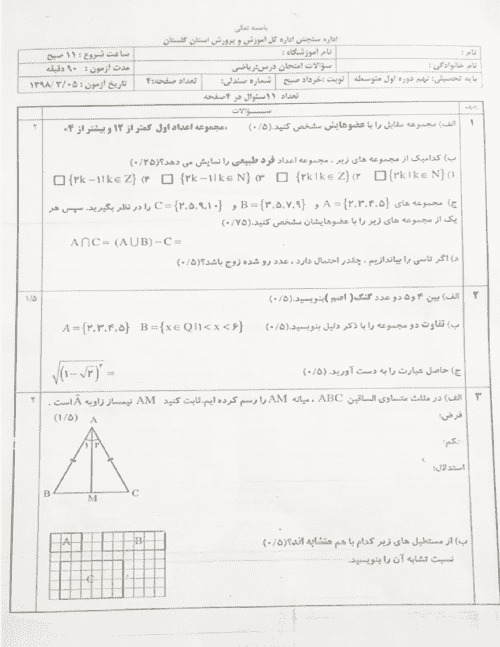 باسمه تعالی
اداره سنجش اداره کل آموزش و پرورش استان گلستان
نام :
نام آموزشگاه :
ساعت شروع : ۱۱ صبح
نام خانوادگی :
سؤالات امتحان درس:ریاضی
مدت آزمون : ۹۰ دقیقه
پایه تحصیلی: نهم دوره اول متوسطه
نوبت :خرداد صبح
شماره صندلی:
تعداد صفحه:۴
تاریخ آزمون : ۱۳۹۸/۳/۰۵
تعداد ۱۱سئوال در ۴صفحه
ســـؤالات
۱
الف) مجموعه مقابل را با عضوهایش مشخص کنید.(۰/۵) ،مجموعه اعداد اول کمتر از ۱۲ و بیشتر از ۰۴
۲
ب) کدامیک از مجموعه های زیر ، مجموعه اعداد فرد طبیعی را نمایش می دهد؟(۰/۲۵)
۱) {۲k | k ∈ N} □ ۲) {۲k | k ∈ Z} □ ۳) {۲k −۱ | k ∈ N} □ ۴) {۲k −۱ | k ∈ Z} □
ج) مجموعه های A = {۲،۳،۴،۵} و B = {۳،۵،۷،۹} و C = {۲،۵،۹،۱۰} را در نظر بگیرید. سپس هر
یک از مجموعه های زیر را با عضوهایشان مشخص کنید.(۰/۷۵)
A∩C = (A∪B)−C =
د) اگر تاسی را بیاندازیم ، چقدر احتمال دارد ، عدد رو شده زوج باشد؟(۰/۵)
۲
الف) بین ۴ و ۵ دو عدد گنگ( اصم )بنویسید.(۰/۵)
۱/۵
ب) تفاوت دو مجموعه را با ذکر دلیل بنویسید.(۰/۵) A = {۲،۳،۴،۵} B = {x ∈ Q | ۱ < x < ۶}
ج) حاصل عبارت را به دست آورید. (۰/۵) √(۱−√۳)^۲ =
۳
الف) در مثلث متساوی الساقین ABC ، میانه AM را رسم کرده ایم.ثابت کنید AM نیمساز زاویه Â است .
۲
(۱/۵)
فرض:
حکم:
استدلال:
A
۱ ۲
B M C
ب) از مستطیل های زیر کدام با هم متشابه اند؟(۰/۵)
نسبت تشابه آن را بنویسید.
A B
C